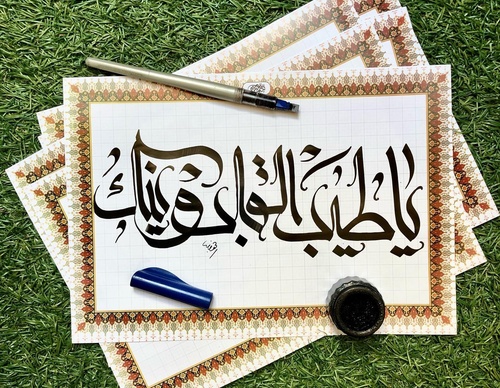 يا طيب القلب وينك